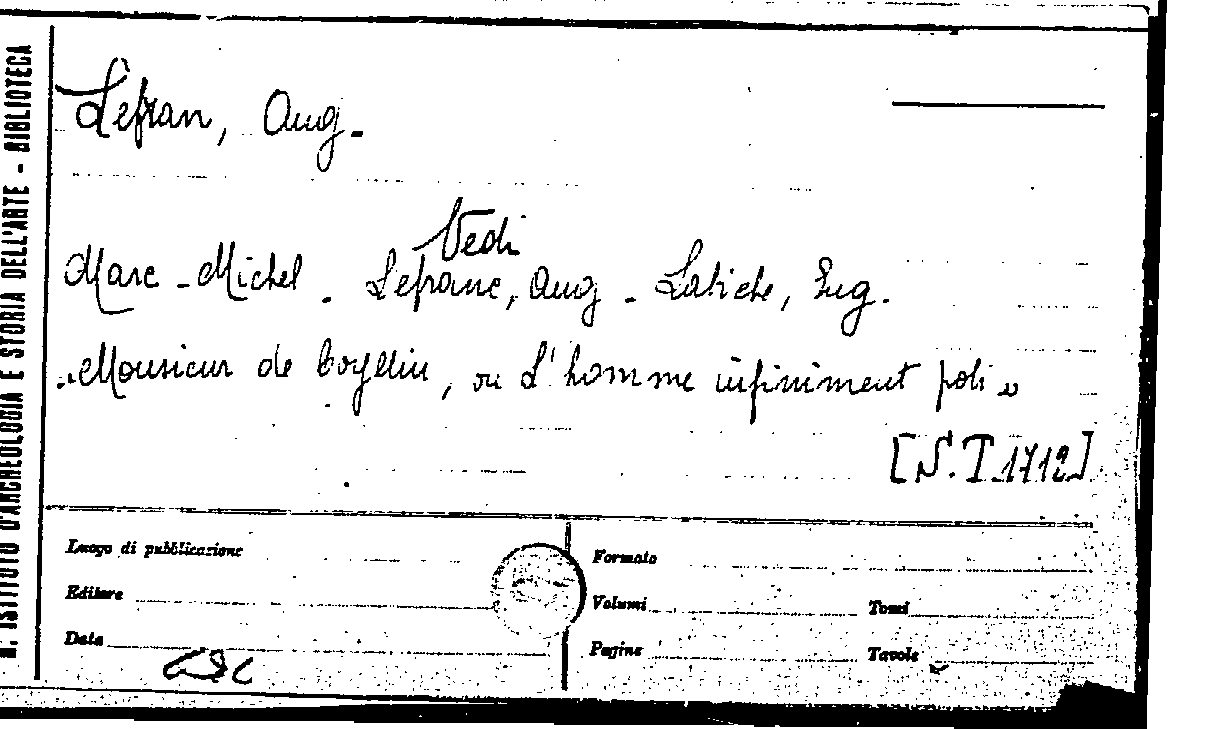 R. ISTITUTO D'ARCHEOLOGIA E STORIA DELL'ARTE - BIBLIOTECA
Lefran, Aug.
Vedi
Marc-Michel - Lefranc, Aug - Labiche, Eug.
"Monsieur de Coyllin, ou L'homme infiniment poli"
[N.T.1712]
Luogo di pubblicazione
Editore
Data
Formato
Volumi
Tomi
Pagine
Tavole